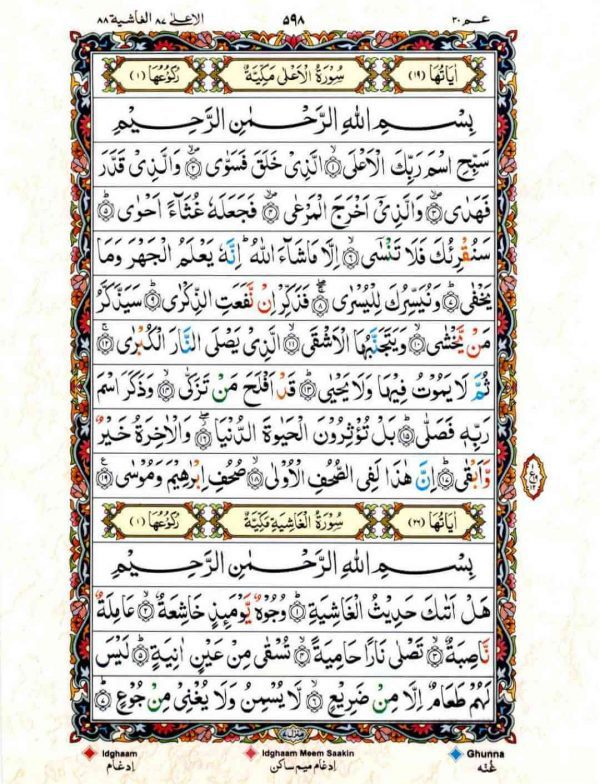 الاعلىٰ ۸۷ الغاشية ۸۸ ۵۹۸ عـم ۳۰
اٰيَاتُهَا (۱۹) سُوْرَةُ الْاَعْلٰى مَكِّيَّةٌ رُكُوْعُهَا (۱)
بِسْمِ اللّٰهِ الرَّحْمٰنِ الرَّحِيْمِ
سَبِّحِ اسْمَ رَبِّكَ الْاَعْلَى ۙ‏﴿۱﴾ الَّذِىْ خَلَقَ فَسَوّٰى ۙ‏﴿۲﴾ وَالَّذِىْ قَدَّرَ
فَهَدٰى ۙ‏﴿۳﴾ وَالَّذِىْٓ اَخْرَجَ الْمَرْعٰى ۙ‏﴿۴﴾ فَجَعَلَهٗ غُثَآءً اَحْوٰى ؕ‏﴿۵﴾
سَنُقْرِئُكَ فَلَا تَنْسٰٓى ۙ‏﴿۶﴾ اِلَّا مَا شَآءَ اللّٰهُ ؕ اِنَّهٗ يَعْلَمُ الْجَهْرَ وَمَا
يَخْفٰى ؕ‏﴿۷﴾ وَنُيَسِّرُكَ لِلْيُسْرٰى ۖ‏﴿۸﴾ فَذَكِّرْ اِنْ نَّفَعَتِ الذِّكْرٰى ؕ‏﴿۹﴾ سَيَذَّكَّرُ
مَنْ يَّخْشٰى ۙ‏﴿۱۰﴾ وَيَتَجَنَّبُهَا الْاَشْقَى ۙ‏﴿۱۱﴾ الَّذِىْ يَصْلَى النَّارَ الْكُبْرٰى ۚ‏﴿۱۲﴾
ثُمَّ لَا يَمُوْتُ فِيْهَا وَلَا يَحْيٰى ؕ‏﴿۱۳﴾ قَدْ اَفْلَحَ مَنْ تَزَكّٰى ۙ‏﴿۱۴﴾ وَذَكَرَ اسْمَ
رَبِّهٖ فَصَلّٰى ؕ‏﴿۱۵﴾ بَلْ تُؤْثِرُوْنَ الْحَيٰوةَ الدُّنْيَا ۖ‏﴿۱۶﴾ وَالْاٰخِرَةُ خَيْرٌ
وَّاَبْقٰى ؕ‏﴿۱۷﴾ اِنَّ هٰذَا لَفِى الصُّحُفِ الْاُوْلٰى ۙ‏﴿۱۸﴾ صُحُفِ اِبْرٰهِيْمَ وَمُوْسٰى‏﴿۱۹﴾
ع
اٰيَاتُهَا (۲۶) سُوْرَةُ الْغَاشِيَةِ مَكِّيَّةٌ رُكُوْعُهَا (۱)
بِسْمِ اللّٰهِ الرَّحْمٰنِ الرَّحِيْمِ
هَلْ اَتٰٮكَ حَدِيْثُ الْغَاشِيَةِ ؕ‏﴿۱﴾ وُجُوْهٌ يَّوْمَٮِٕذٍ خَاشِعَةٌ ۙ‏﴿۲﴾ عَامِلَةٌ
نَّاصِبَةٌ ۙ‏﴿۳﴾ تَصْلٰى نَارًا حَامِيَةً ۙ‏﴿۴﴾ تُسْقٰى مِنْ عَيْنٍ اٰنِيَةٍ ؕ‏﴿۵﴾ لَيْسَ
لَهُمْ طَعَامٌ اِلَّا مِنْ ضَرِيْعٍ ۙ‏﴿۶﴾ لَّا يُسْمِنُ وَلَا يُغْنِىْ مِنْ جُوْعٍ ؕ‏﴿۷﴾
منزل ۷
Idghaam Idghaam Meem Saakin Ghunna
ادغام ادغام ميم ساكن غُنّه